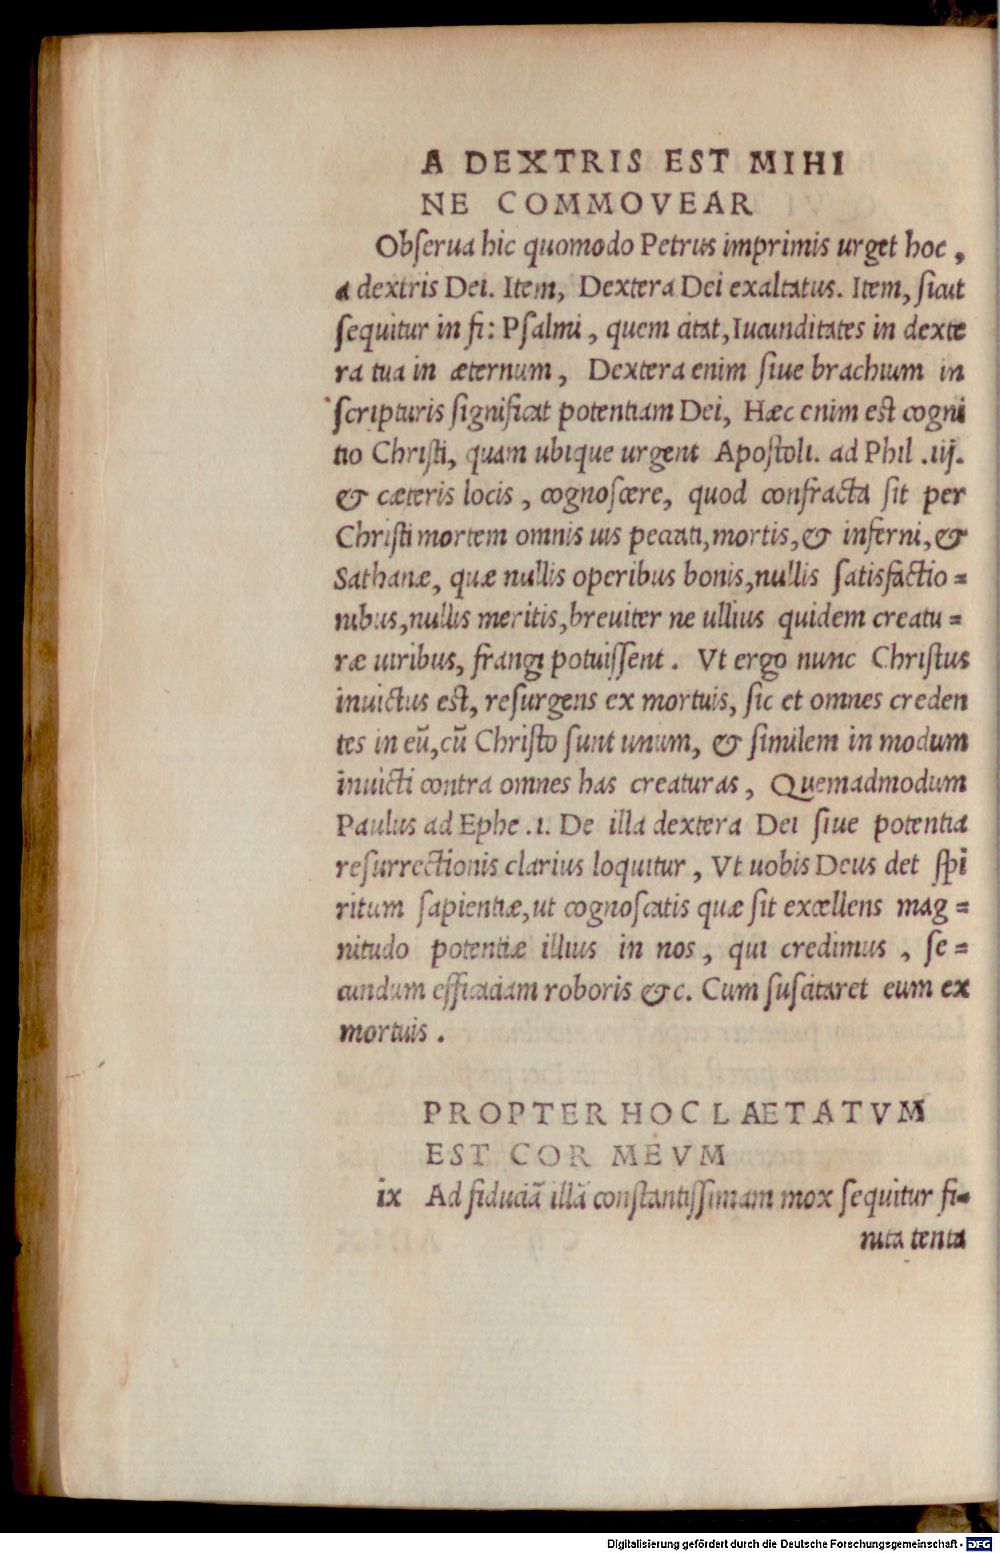 A DEXTRIS EST MIHI
NE COMMOVEAR
Obſerua hic quomodo Petrus imprimis urget hoc,
a dextris Dei. Item, Dextera Dei exaltatus. Item, ſicut
ſequitur in fi: Pſalmi, quem citat, Iucunditates in dexte
ra tua in æternum, Dextera enim ſiue brachium in
ſcripturis ſignificat potentiam Dei, Hæc enim est cogni
tio Chriſti, quam ubique urgent Apoſtoli. ad Phil .iij.
& cæteris locis, cognoſcere, quod confracta ſit per
Chriſti mortem omnis uis peccati, mortis, & inferni, &
Sathanæ, quæ nullis operibus bonis, nullis ſatisfactio=
nibus, nullis meritis, breuiter ne ullius quidem creatu=
ræ uiribus, frangi potuiſſent. Vt ergo nunc Chriſtus
inuictus est, reſurgens ex mortuis, ſic et omnes creden
tes in eũ, cũ Chriſto ſunt unum, & ſimilem in modum
inuicti contra omnes has creaturas, Quemadmodum
Paulus ad Ephe .1. De illa dextera Dei ſiue potentia
reſurrectionis clarius loquitur, Vt uobis Deus det ſpi
ritum ſapientiæ, ut cognoſcatis quæ ſit excellens mag=
nitudo potentiæ illius in nos, qui credimus, ſe=
cundum efficaciam roboris &c. Cum ſuſcitaret eum ex
mortuis.
PROPTER HOC LAETATVM
EST COR MEVM
ix Ad fiduciã illã conſtantiſſimam mox ſequitur fi=
nita tenta
Digitalisierung gefördert durch die Deutsche Forschungsgemeinschaft - DFG